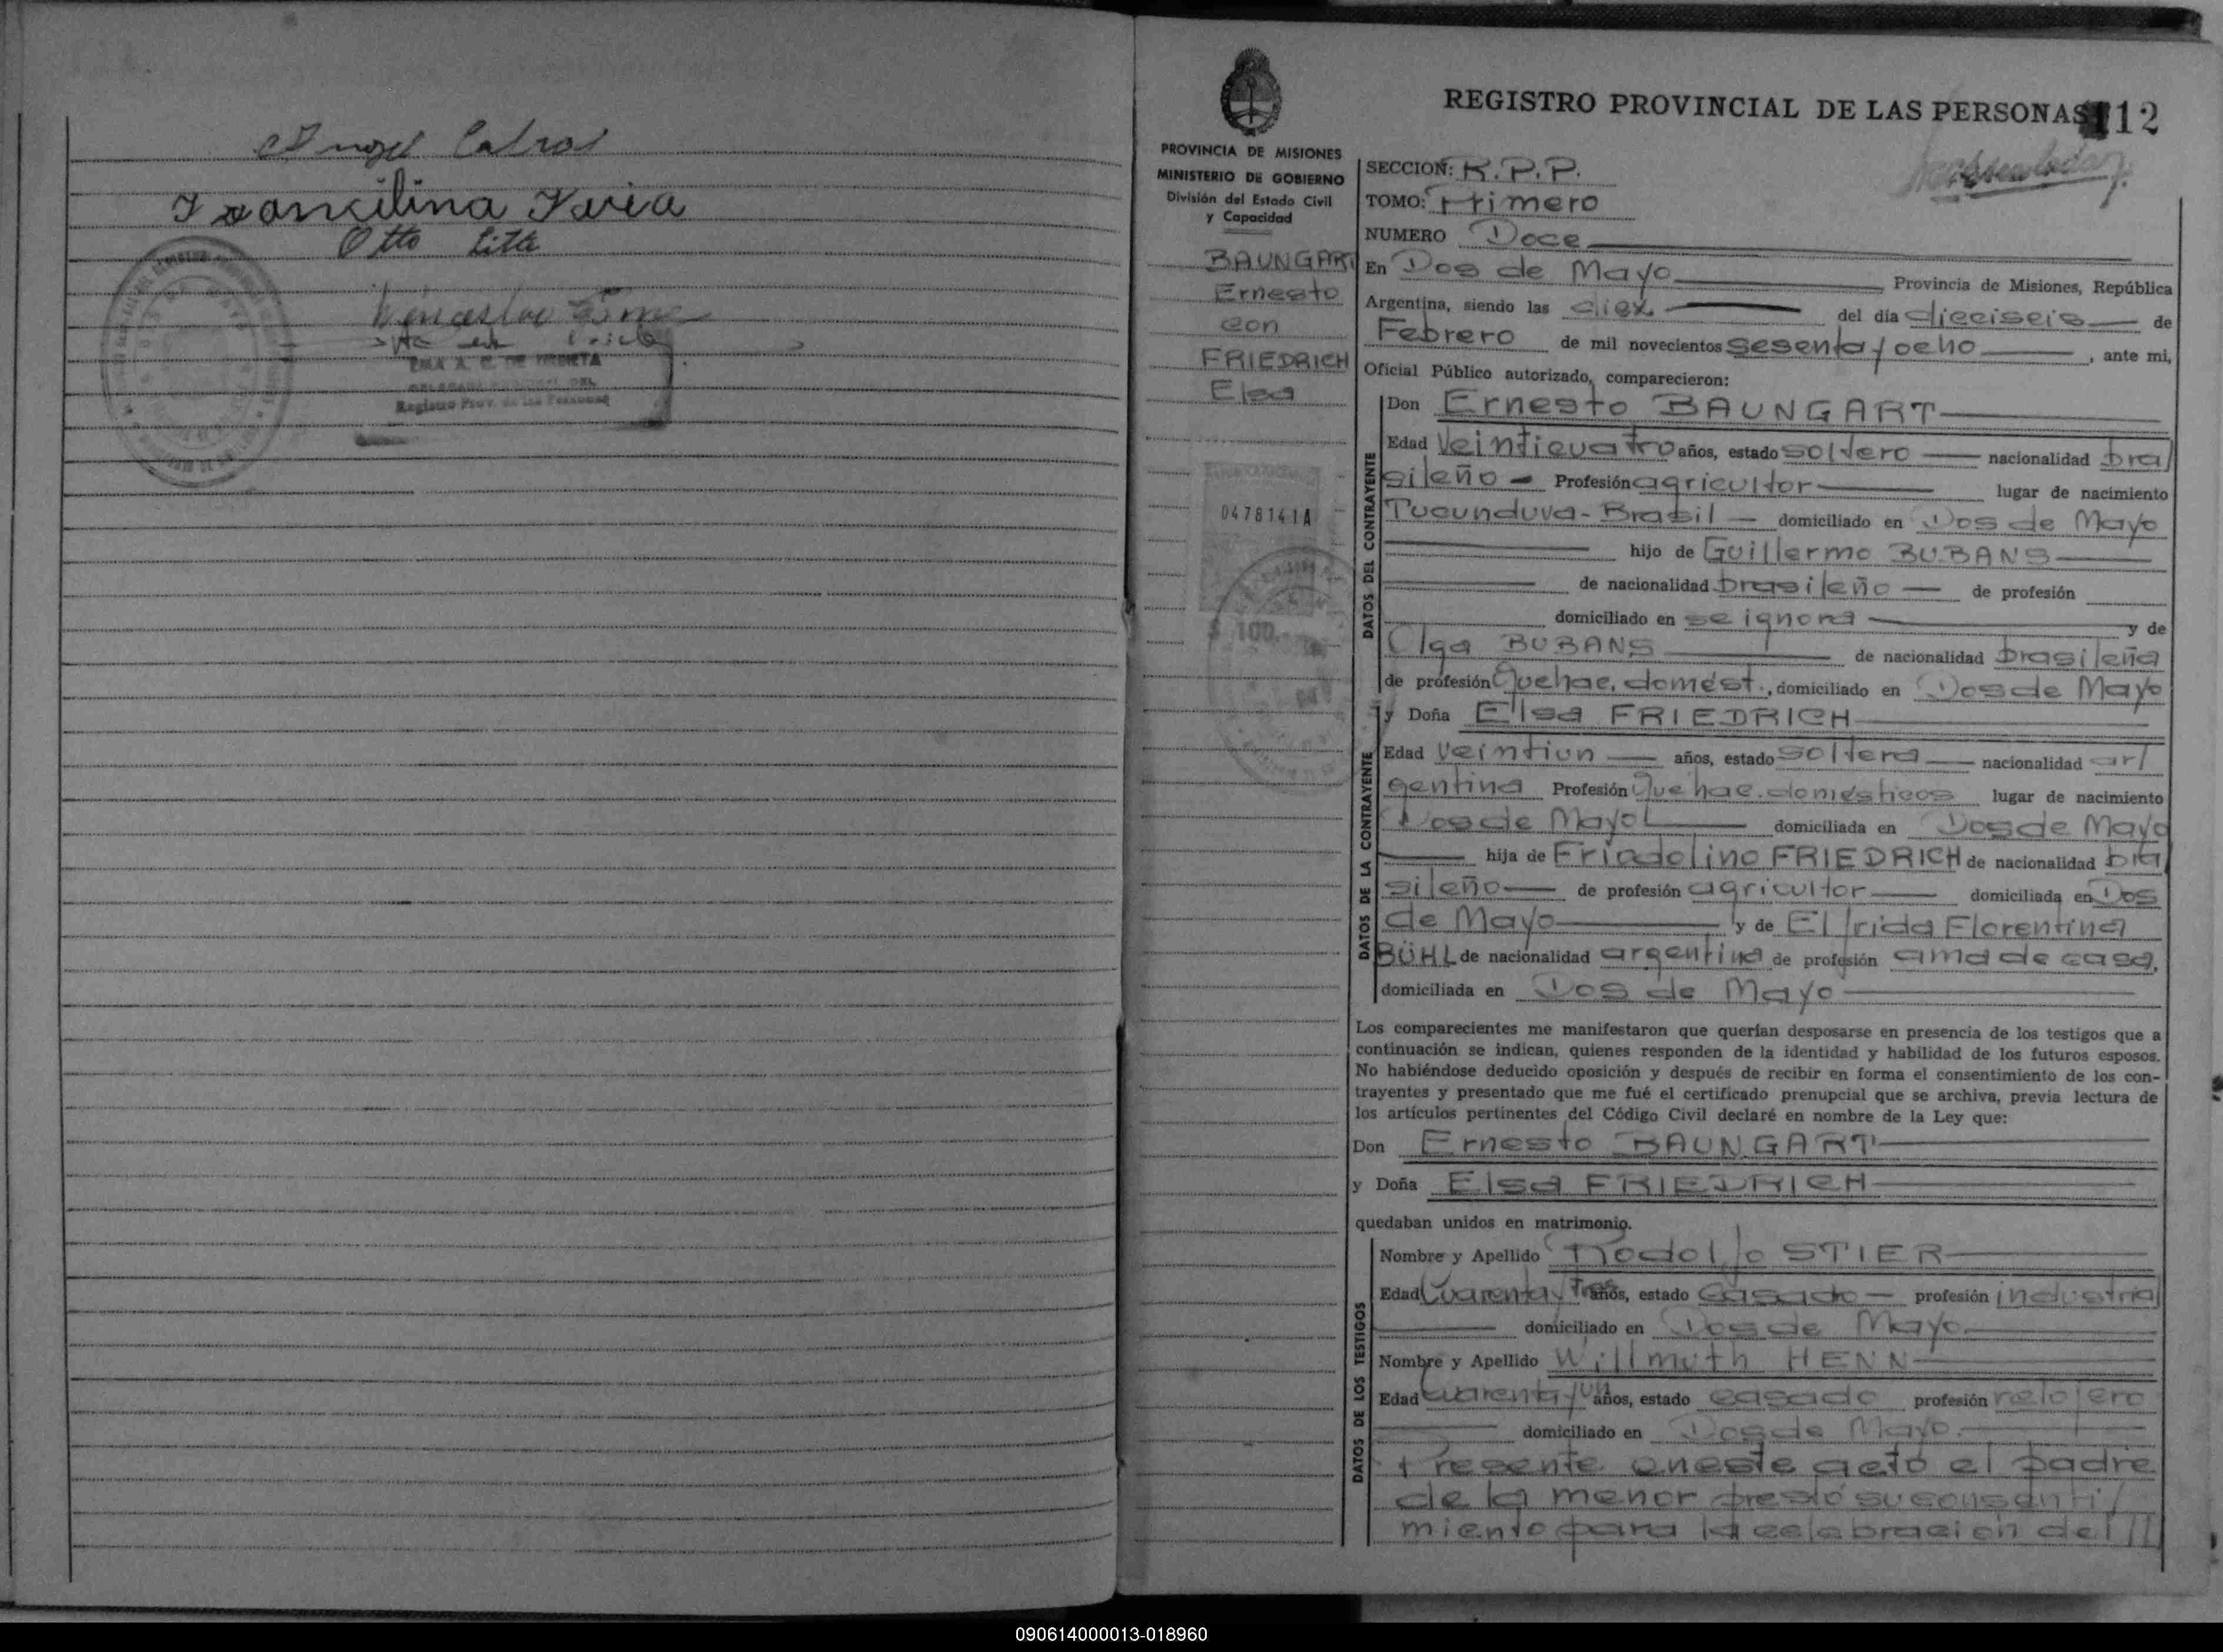 Angel Cabral
Francilina Faria
Otto
REGISTRO PROVINCIAL DE LAS PERSONAS 12
PROVINCIA DE MISIONES
MINISTERIO DE GOBIERNO
División del Estado Civil
y Capacidad
BAUNGART
Ernesto
con
FRIEDRICH
Elsa
0478141A
$ 100.
SECCION: R.P.P.
TOMO: Primero
NUMERO Doce
En Dos de Mayo Provincia de Misiones, República
Argentina, siendo las diez del día dieciseis de
Febrero de mil novecientos sesenta y ocho, ante mi,
Oficial Público autorizado, comparecieron:
DATOS DEL CONTRAYENTE
Don Ernesto BAUNGART
Edad Veinticuatro años, estado soltero nacionalidad bra/
sileño Profesión agricultor lugar de nacimiento
Tucunduva - Brasil domiciliado en Dos de Mayo
hijo de Guillermo BUBANS
de nacionalidad brasileño de profesión
domiciliado en se ignora y de
Olga BUBANS de nacionalidad brasileña
de profesión Quehac. domést., domiciliado en Dos de Mayo
DATOS DE LA CONTRAYENTE
y Doña Elsa FRIEDRICH
Edad Veintiun años, estado soltera nacionalidad ar/
gentina Profesión Quehac. domésticos lugar de nacimiento
Dos de Mayo domiciliada en Dos de Mayo
hija de Friadolino FRIEDRICH de nacionalidad bra/
sileño de profesión agricultor domiciliada en Dos
de Mayo y de Elfrida Florentina
BÜHL de nacionalidad argentina de profesión ama de casa,
domiciliada en Dos de Mayo
Los comparecientes me manifestaron que querían desposarse en presencia de los testigos que a
continuación se indican, quienes responden de la identidad y habilidad de los futuros esposos.
No habiéndose deducido oposición y después de recibir en forma el consentimiento de los con-
trayentes y presentado que me fué el certificado prenupcial que se archiva, previa lectura de
los artículos pertinentes del Código Civil declaré en nombre de la Ley que:
Don Ernesto BAUNGART
y Doña Elsa FRIEDRICH
quedaban unidos en matrimonio.
DATOS DE LOS TESTIGOS
Nombre y Apellido Rodolfo STIER
Edad Cuarenta y Tres años, estado Casado profesión industrial
domiciliado en Dos de Mayo
Nombre y Apellido Willmuth HENN
Edad Cuarenta y un años, estado casado profesión relojero
domiciliado en Dos de Mayo.
Presente en este acto el padre
de la menor prestó su consenti/
miento para la celebración del //
090614000013-018960